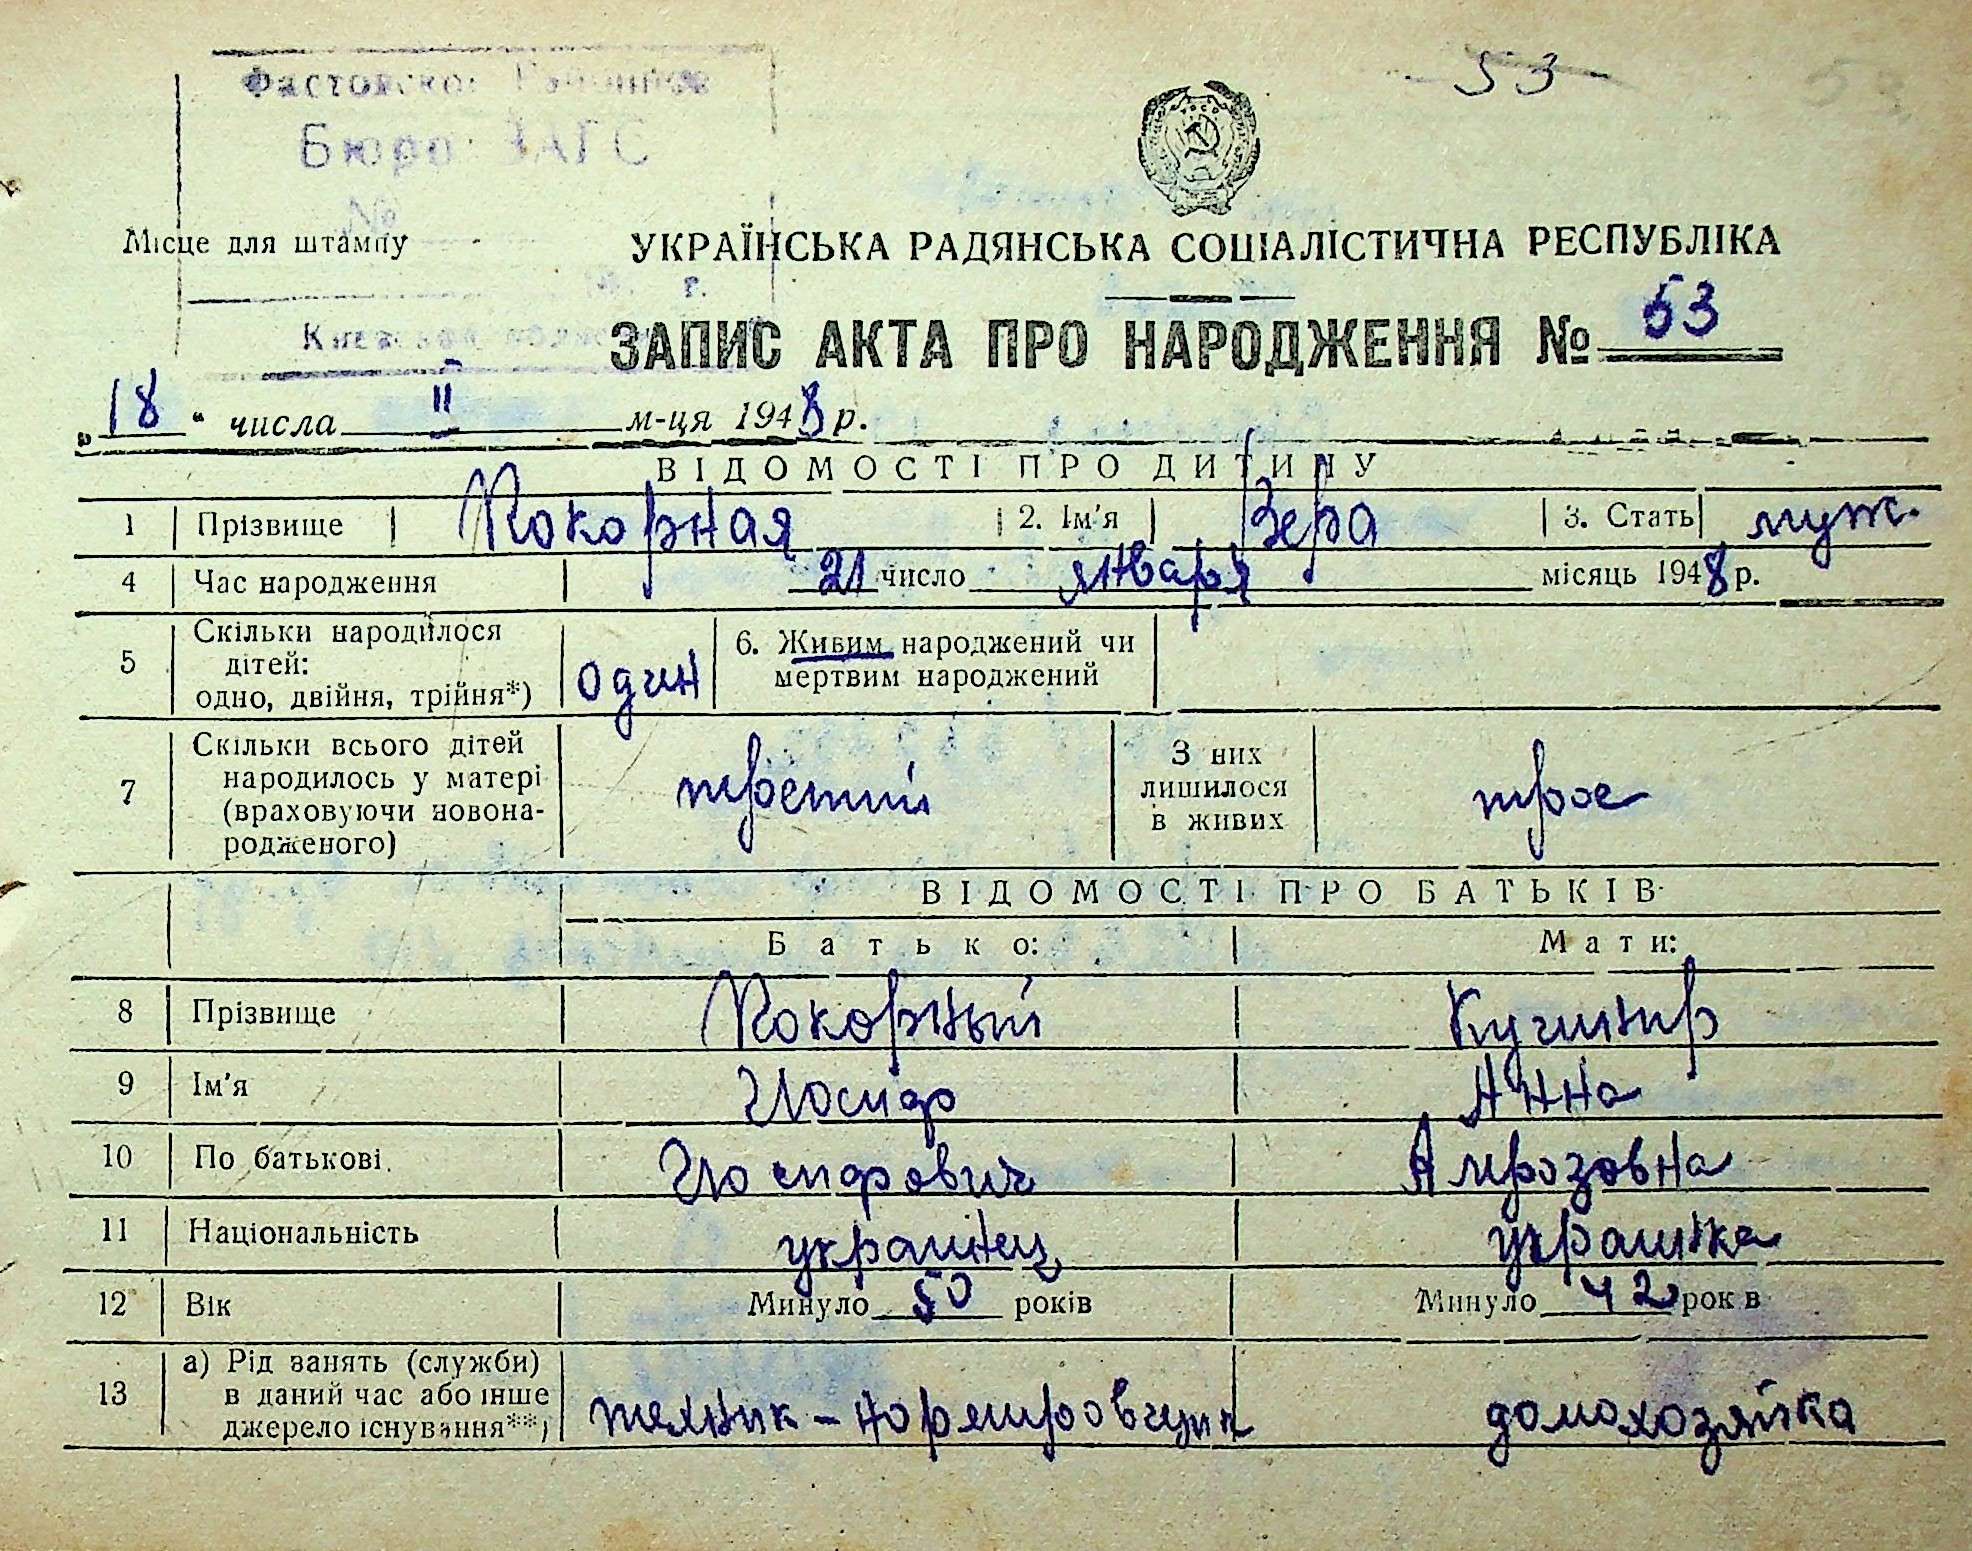 53
Бюро ЗАГС
№
г.
Місце для штампу
УКРАЇНСЬКА РАДЯНСЬКА СОЦІАЛІСТИЧНА РЕСПУБЛІКА
ЗАПИС АКТА ПРО НАРОДЖЕННЯ № 53
„18“ числа II м-ця 1948 р.
ВІДОМОСТІ ПРО ДИТИНУ
1 Прізвище Покорная 2. Ім'я Вера 3. Стать муж.
4 Час народження 21 число января місяць 1948 р.
5 Скільки народилося
дітей:
одно, двійня, трійня*) один
6. Живим народжений чи
мертвим народжений
7 Скільки всього дітей
народилось у матері
(враховуючи новона-
родженого) третий
З них
лишилося
в живих трое
ВІДОМОСТІ ПРО БАТЬКІВ
Батько: Мати:
8 Прізвище Покорный Кучинир
9 Ім'я Иосиф Анна
10 По батькові Иосифович Амрозовна
11 Національність украинец украинка
12 Вік Минуло 50 років Минуло 42 років
13 а) Рід занять (служби)
в даний час або інше
джерело існування**) техник-нормировщик домохозяйка